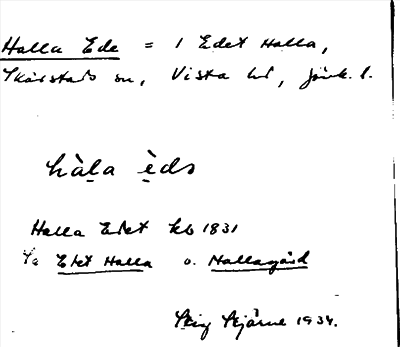 Halla Ede = 1 Edet Halla,
Skärstads sn, Vista hd, Jönk. l.
hàla èds
Halla Edet kb 1831
Edet Halla o. Hallagård
Stig Bjärne 1934.